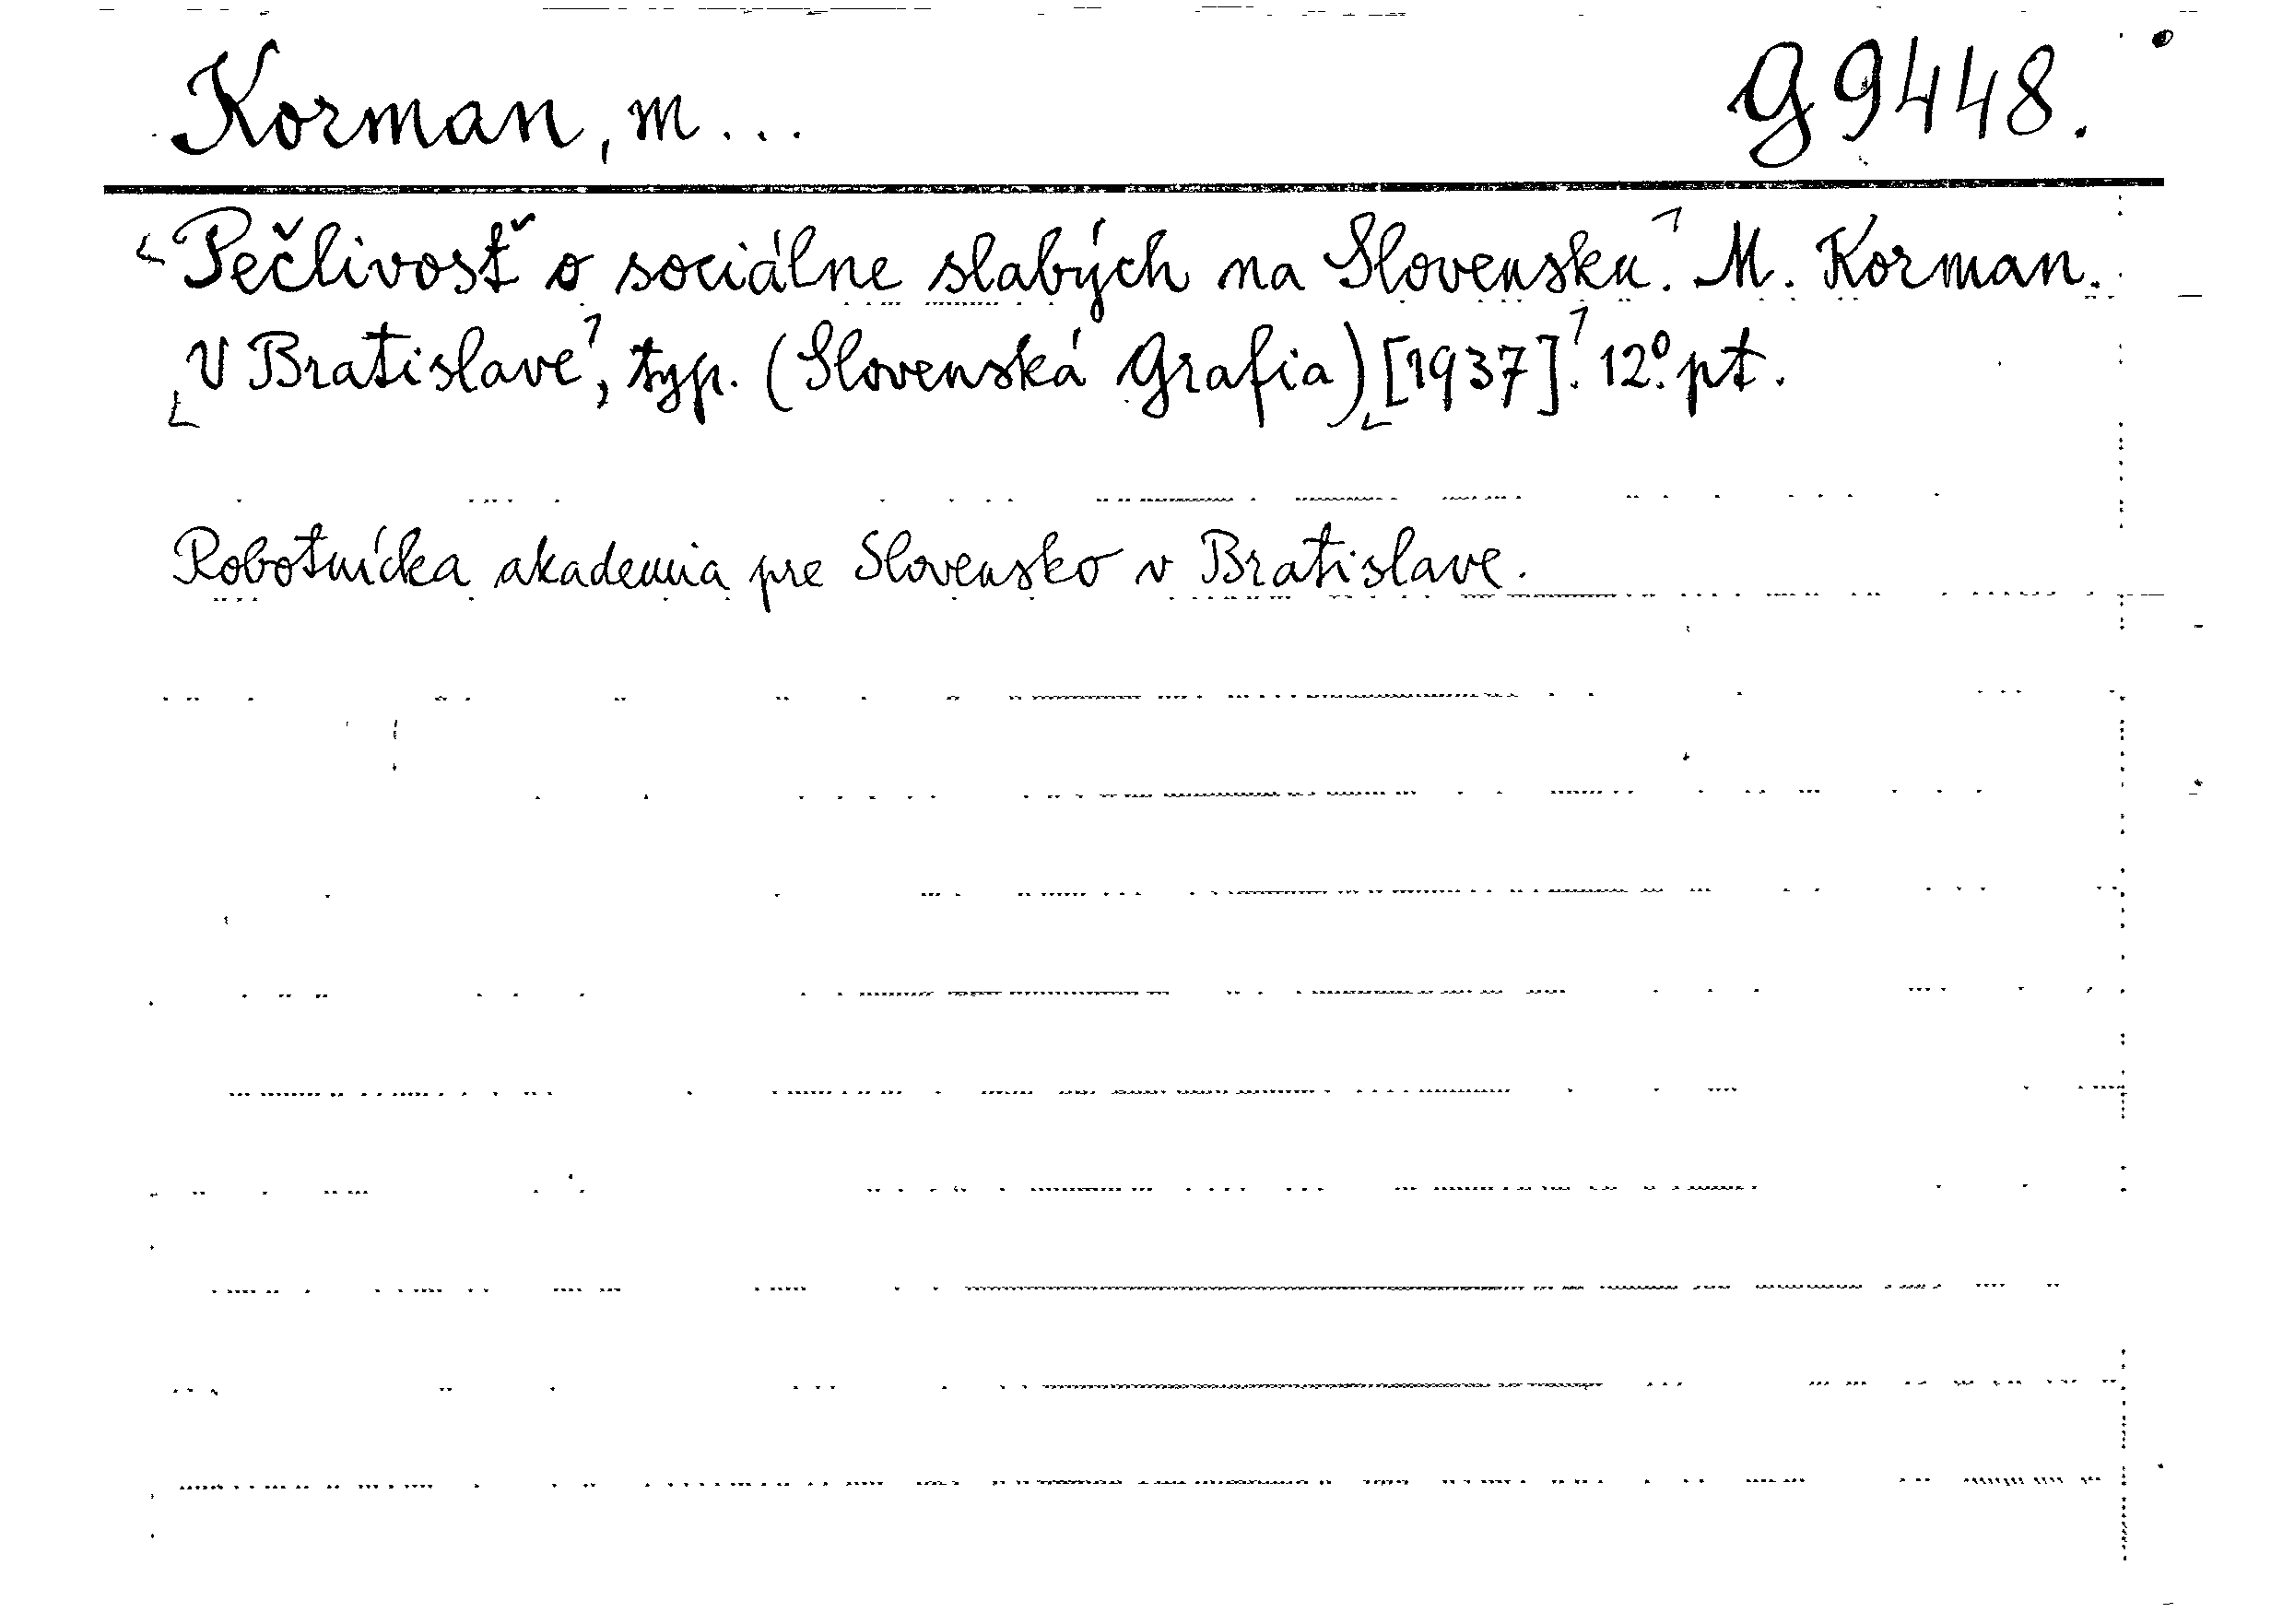 Korman, M... G 9448.
⌞Pečlivosť o sociálne slabých na Slovensku⌝. M. Korman.
⌞V Bratislave⌝, typ. (Slovenská Grafia)⌞[1937]⌝. 12°. pt.
Robotnícka akademia pre Slovensko v Bratislave.